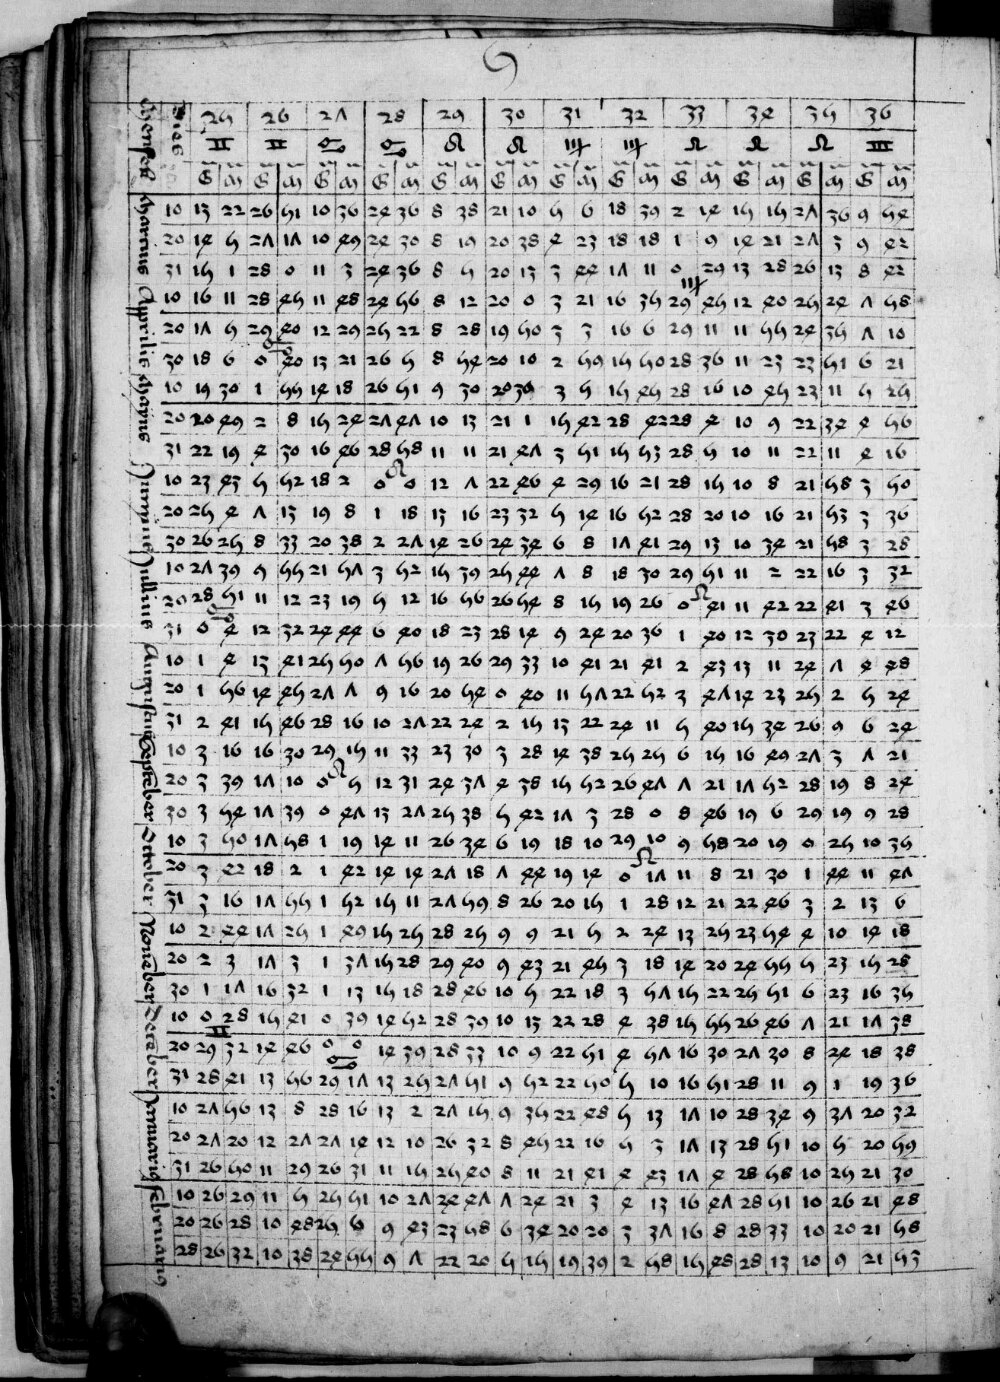 Menses Dies 25 26 27 28 29 30 31 32 33 34 35 36
♊ ♊ ♋ ♋ ♌ ♌ ♍ ♍ ♌ ♌ ♌ III
G M G M G M G M G M G M G M G M G M G M G M G M
Marcius
10 13 22 26 51 10 36 24 36 8 38 21 10 5 6 18 39 2 14 15 15 27 36 9 54
20 14 5 27 17 10 49 24 30 8 19 20 38 4 23 18 18 1 9 14 21 27 3 9 42
31 15 1 28 0 11 3 24 36 8 5 20 13 3 44 17 11 0 29 13 28 26 13 8 42
♍
Aprilis
10 16 11 28 45 11 48 24 56 8 12 20 0 3 21 16 35 29 45 12 40 25 24 7 58
20 17 5 29 40 12 29 25 22 8 28 19 50 3 3 16 6 29 11 11 55 24 35 7 10
♋
30 18 6 0 40 13 21 26 5 8 54 20 10 2 59 15 50 28 36 11 23 23 51 6 21
Mayus
10 19 30 1 55 14 18 26 51 9 30 20 39 3 5 15 45 28 16 10 45 23 11 5 25
20 20 49 2 8 15 24 27 47 10 13 21 1 15 42 28 42 28 4 10 9 22 34 4 56
31 22 19 4 30 16 46 28 58 11 11 21 47 3 51 15 53 28 5 10 11 22 11 4 16
♌
Junnius
10 23 43 5 52 18 2 0 0 12 7 22 46 4 29 16 21 28 15 10 8 21 58 3 50
20 25 4 7 13 19 8 1 18 13 16 23 32 5 14 16 52 28 20 10 16 21 53 3 36
30 26 25 8 33 20 38 2 27 14 26 24 34 6 8 17 41 29 13 10 34 21 58 3 28
Jullius
10 27 39 9 55 21 57 3 52 15 39 25 44 7 8 18 30 29 51 11 2 22 16 3 32
20 28 51 11 12 23 19 5 12 16 56 26 54 8 15 19 26 0 41 11 42 22 41 3 46
♋ ♌
31 0 4 12 32 24 44 6 40 18 23 28 14 9 24 20 36 1 40 12 30 23 22 4 12
Augustus
10 1 4 13 41 25 50 7 56 19 26 29 33 10 41 21 41 2 43 13 11 24 7 4 48
20 1 56 14 45 27 7 9 16 20 54 0 40 11 57 22 52 3 47 14 23 25 2 5 24
31 2 41 15 46 28 16 10 27 22 24 2 15 13 22 24 11 5 40 15 34 26 9 6 24
September
10 3 16 16 30 29 15 11 33 23 30 3 28 14 38 25 25 6 15 16 49 27 3 7 21
♌
20 3 39 17 10 0 5 12 31 24 37 4 38 15 52 26 47 7 21 17 52 28 19 8 24
30 3 54 17 39 0 47 13 27 25 38 5 42 17 3 28 0 8 46 19 6 29 19 9 28
October
10 3 50 17 58 1 19 14 11 26 34 6 19 18 10 29 10 9 58 20 19 0 25 10 35
♌
20 3 42 18 2 1 42 14 14 27 18 7 44 19 14 0 17 11 8 21 30 1 44 11 47
31 3 16 17 55 1 52 15 11 27 59 8 26 20 15 1 28 12 21 22 46 3 2 13 6
November
10 2 44 17 25 1 49 15 25 28 25 9 9 21 5 2 24 13 25 23 54 4 10 14 18
20 2 3 17 3 1 37 15 28 29 40 9 43 21 45 3 18 14 20 24 55 5 23 15 28
30 1 17 16 32 1 13 15 18 28 46 10 5 22 18 3 57 15 22 25 51 6 23 16 35
December
10 0 28 15 41 0 39 14 52 28 39 10 13 22 28 4 38 15 55 26 46 7 21 17 38
♊
20 29 32 14 46 0 0 14 39 28 33 10 9 22 51 4 57 16 30 27 30 8 24 18 38
♋
31 28 41 13 56 29 17 13 25 27 51 9 52 22 50 5 10 16 51 28 11 9 1 19 36
Januarius
10 27 56 13 8 28 16 13 2 27 15 9 35 22 48 5 13 17 10 28 34 9 37 20 32
20 27 20 12 27 27 14 12 10 26 32 8 45 22 16 5 3 17 13 28 51 10 5 20 59
31 26 50 11 29 26 31 11 15 25 40 8 11 21 41 4 43 17 4 28 58 10 25 21 30
Februarius
10 26 29 11 5 25 51 10 27 24 47 7 24 21 3 4 13 16 47 28 51 10 26 21 48
20 26 28 10 48 25 6 9 43 23 58 6 34 20 20 3 37 16 8 28 33 10 20 21 58
28 26 32 10 38 24 55 9 7 22 20 5 15 19 39 2 58 15 48 28 13 10 9 21 53